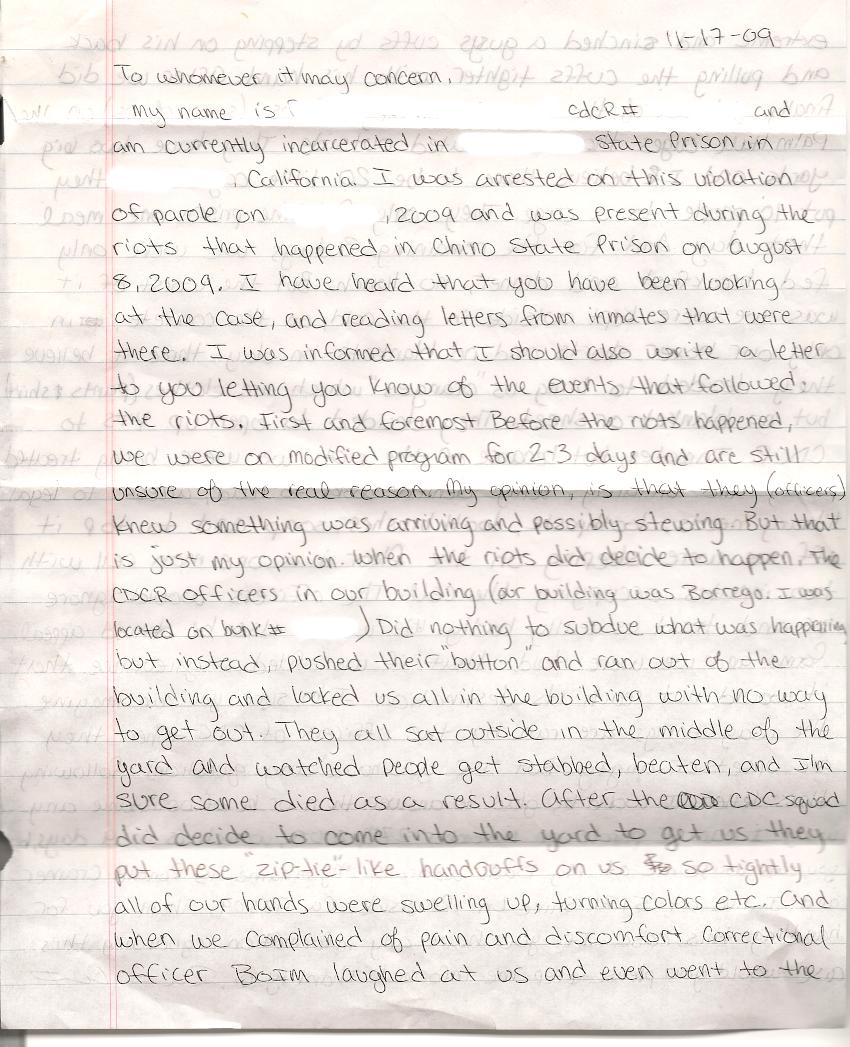 11-17-09
To whomever it may concern,
my name is CDCR# and
am currently incarcerated in State Prison in
, California. I was arrested on this violation
of parole on , 2009 and was present during the
riots that happened in Chino State Prison on august
8, 2009. I have heard that you have been looking
at the case, and reading letters from inmates that were
there. I was informed that I should also write a letter
to you letting you know of the events that followed
the riots. First and foremost Before the riots happened,
we were on modified program for 2-3 days and are still
unsure of the real reason. My opinion, is that they (officers)
knew something was arriving and possibly stewing. But that
is just my opinion. when the riots did decide to happen. The
CDCR officers in our building (our building was Borrego. I was
located on bunk# ) Did nothing to subdue what was happening
but instead, pushed their "button" and ran out of the
building and locked us all in the building with no way
to get out. They all sat outside in the middle of the
yard and watched people get stabbed, beaten, and I'm
sure some died as a result. After the CDC squad
did decide to come into the yard to get us they
put these "zip-tie"-like handcuffs on us so tightly
all of our hands were swelling up, turning colors etc. and
when we complained of pain and discomfort correctional
officer Boim laughed at us and even went to the